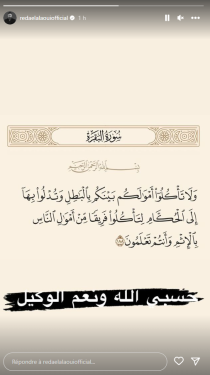 redaelalaouiofficial 1 h
سُورَةُ البَقَرَةِ
بِسْمِ اللَّهِ الرَّحْمَٰنِ الرَّحِيمِ
وَلَا تَأْكُلُوٓا۟ أَمْوَٰلَكُم بَيْنَكُم بِٱلْبَٰطِلِ وَتُدْلُوا۟ بِهَآ
إِلَى ٱلْحُكَّامِ لِتَأْكُلُوا۟ فَرِيقًا مِّنْ أَمْوَٰلِ ٱلنَّاسِ
بِٱلْإِثْمِ وَأَنتُمْ تَعْلَمُونَ ١٨٨
حسبي الله ونعم الوكيل
Répondre à redaelalaouiofficial...